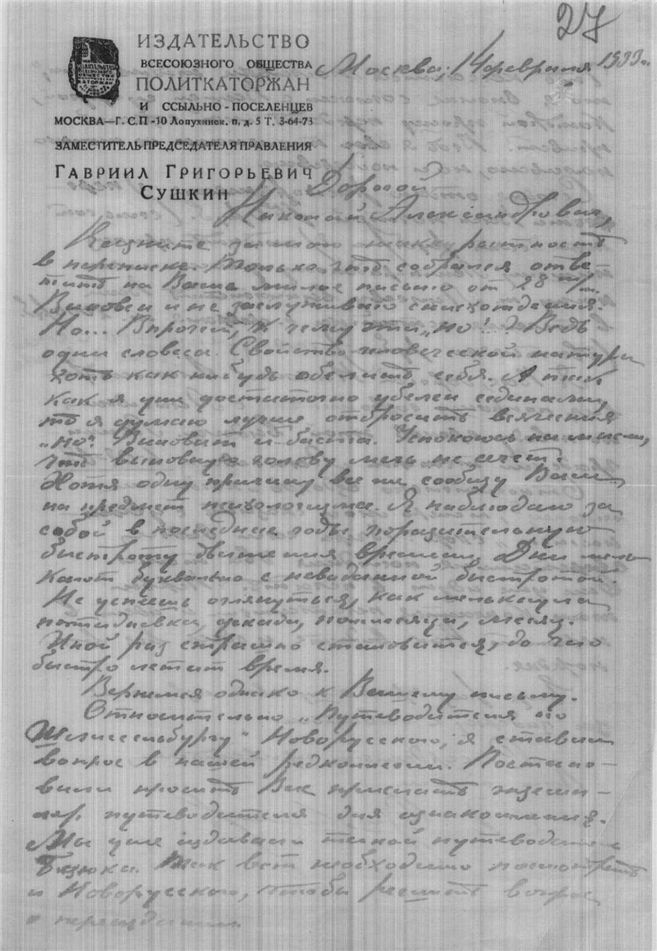 27
ИЗДАТЕЛЬСТВО
ВСЕСОЮЗНОГО ОБЩЕСТВА
ПОЛИТКАТОРЖАН
И ССЫЛЬНО-ПОСЕЛЕНЦЕВ
МОСКВА—Г.С.П-10 Лопухинск. п, д. 5 Т. 3-64-73
ЗАМЕСТИТЕЛЬ ПРЕДСЕДАТЕЛЯ ПРАВЛЕНИЯ
ГАВРИИЛ ГРИГОРЬЕВИЧ
СУШКИН
Москва, 14 февраля 1933 г.
Дорогой
Николай Александрович,
Казните за мою неаккуратность
в переписке. Только что собрался отве
тить на Ваше милое письмо от 28 п/м.
Виновен и не заслуживаю снисхождения.
Но... Впрочем, к чему эти „но"! Ведь
одни словеса. Свойство человеческой натуры
хоть как нибудь обелить себя. А так
как я уже достаточно убелен сединами,
то я думаю лучше отбросить всяческия
„но". Виноват и баста. Успокоюсь на мысли,
что виновную голову мечь не сечет.
Хотя одну причину все же сообщу Вам,
на предмет психологизма. Я наблюдаю за
собой в последние годы поразительную
быстроту движения времени. Дни мель
кают буквально с невиданной быстротой.
Не успеешь оглянуться, как мелькнула
пятидневка, декада, полмесяца, месяц.
Иной раз страшно становится, до чего
быстро летит время.
Вернемся однако к Вашему письму.
Относительно „Путеводителя по
Шлиссельбургу" Новорусского, я ставил
вопрос в нашей редколлегии. Постано-
вили просить Вас прислать экземп-
ляр путеводителя для ознакомления.
Мы уже издавали такой путеводитель
Так вот необходимо посмотреть
и Новорусского, чтобы решить вопрос
о переиздании.